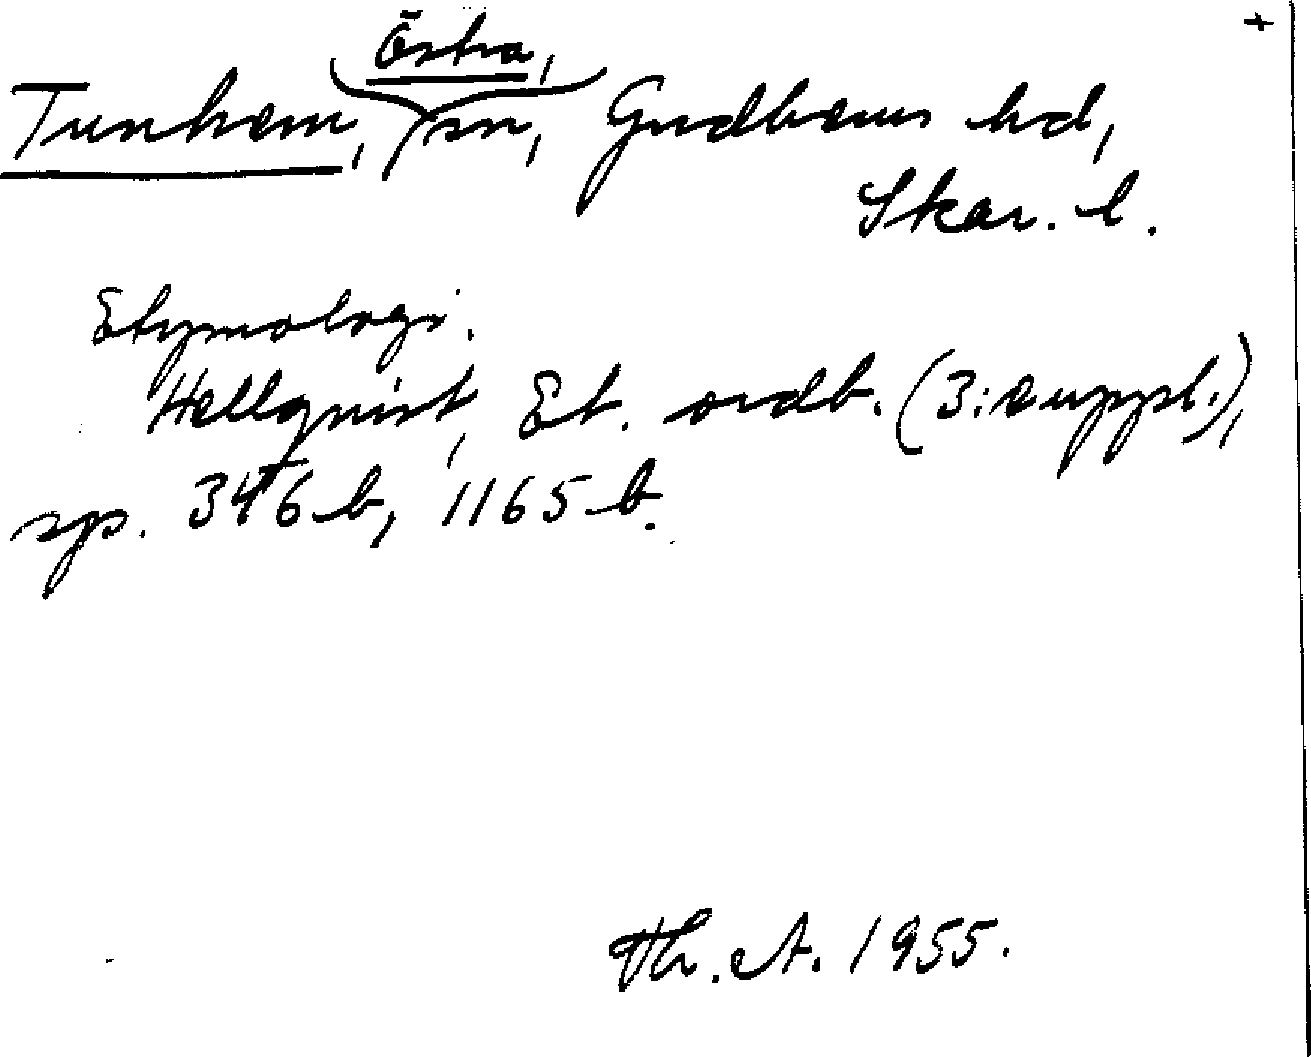 +
Östra,
Tunhem, sn, Gudhems hd,
Skar. l.
Etymologi.
Hellquist, Et. ordb. (3:e uppl.),
sp. 346 b, 1165 b.
Th. A. 1955.